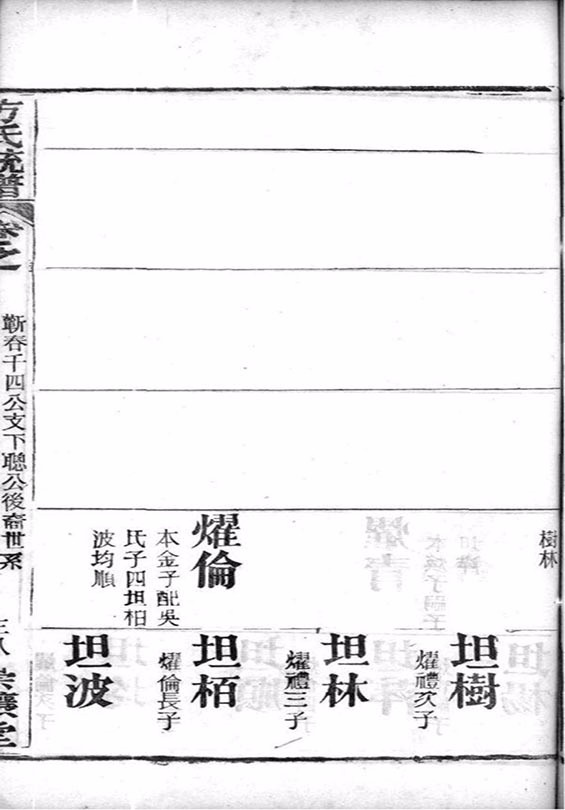 樹林
燿倫
本金子配吳
氏子四坦柏
波均順
坦樹
燿禮次子
坦林
燿禮三子
坦栢
燿倫長子
坦波
方氏統譜
卷之
蘄春千四公支下聰公後裔世系